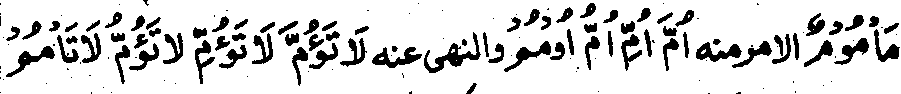 مَأْمُوْمٌ الامر منه اُمَّ اُمِّ اُمُّ اُوْمُمْ والنهى عنه لَا تَؤُمَّ لَا تَؤُمِّ لا تَؤُمُّ لَا تَأْمُمْ